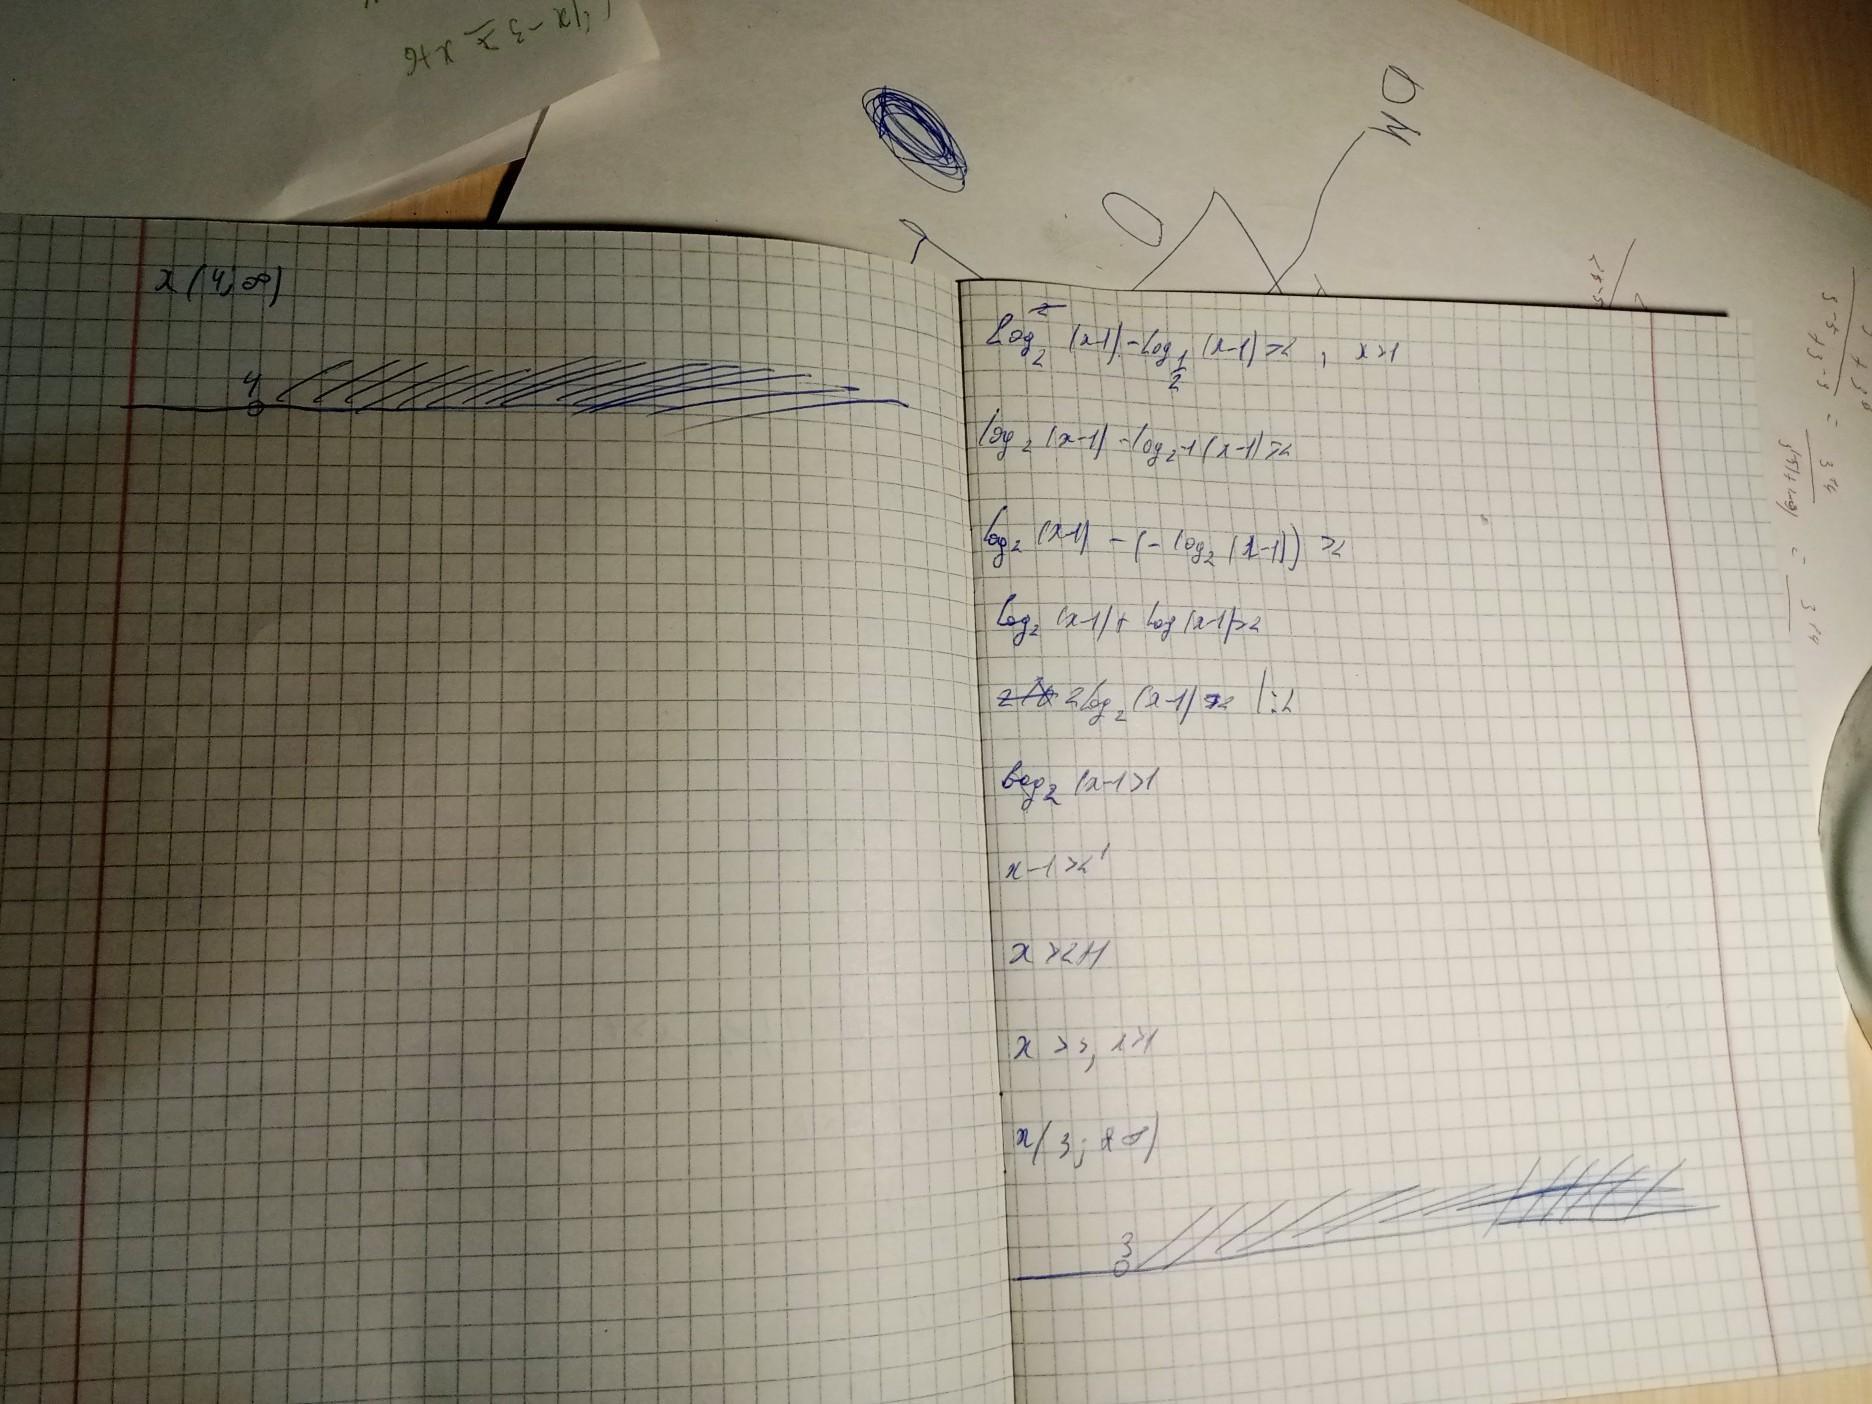 x (4; ∞)
4
log₂ (x-1) - log½ (x-1) > 2 , x>1
log₂ (x-1) - log₂-1 (x-1) > 2
log₂ (x-1) - (- log₂ (x-1)) > 2
log₂ (x-1) + log (x-1) > 2
2log₂ (x-1) > 2 |:2
log₂ (x-1 > 1
x-1 > 2¹
x > 2+1
x > 3, x > 1
x (3; +∞)
3